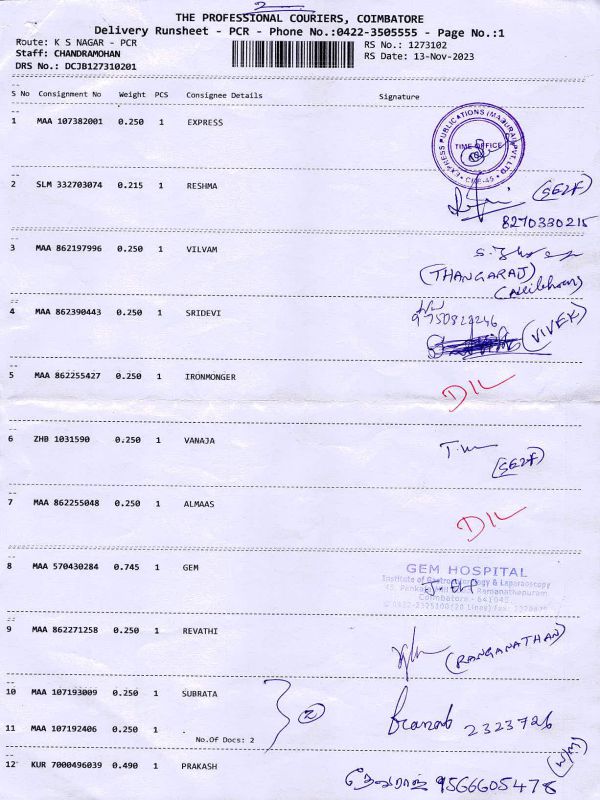 2
THE PROFESSIONAL COURIERS, COIMBATORE
Delivery Runsheet - PCR - Phone No.:0422-3505555 - Page No.:1
Route: K S NAGAR - PCR
RS No.: 1273102
Staff: CHANDRAMOHAN
RS Date: 13-Nov-2023
DRS No.: DCJB127310201
S No Consignment No Weight PCS Consignee Details Signature
1 MAA 107382001 0.250 1 EXPRESS
EXPRESS PUBLICATIONS (MADURAI) PVT. LTD
TIME OFFICE
2 SLM 332703074 0.215 1 RESHMA
(SELF)
8270330215
3 MAA 862197996 0.250 1 VILVAM
(THANGARAJ)
4 MAA 862390443 0.250 1 SRIDEVI
(VIVEK)
5 MAA 862255427 0.250 1 IRONMONGER
DIL
6 ZHB 1031590 0.250 1 VANAJA
(SELF)
7 MAA 862255048 0.250 1 ALMAAS
DIL
8 MAA 570430284 0.745 1 GEM
GEM HOSPITAL
Institute of Gastroenterology & Laparoscopy
Ramanathapuram
Coimbatore - 641045
9 MAA 862271258 0.250 1 REVATHI
(RANGANATHAN)
10 MAA 107193009 0.250 1 SUBRATA
2
2323726
11 MAA 107192406 0.250 1 .
No.Of Docs: 2
12 KUR 7000496039 0.490 1 PRAKASH
(W/M)
தேவராஜ் 9566605478